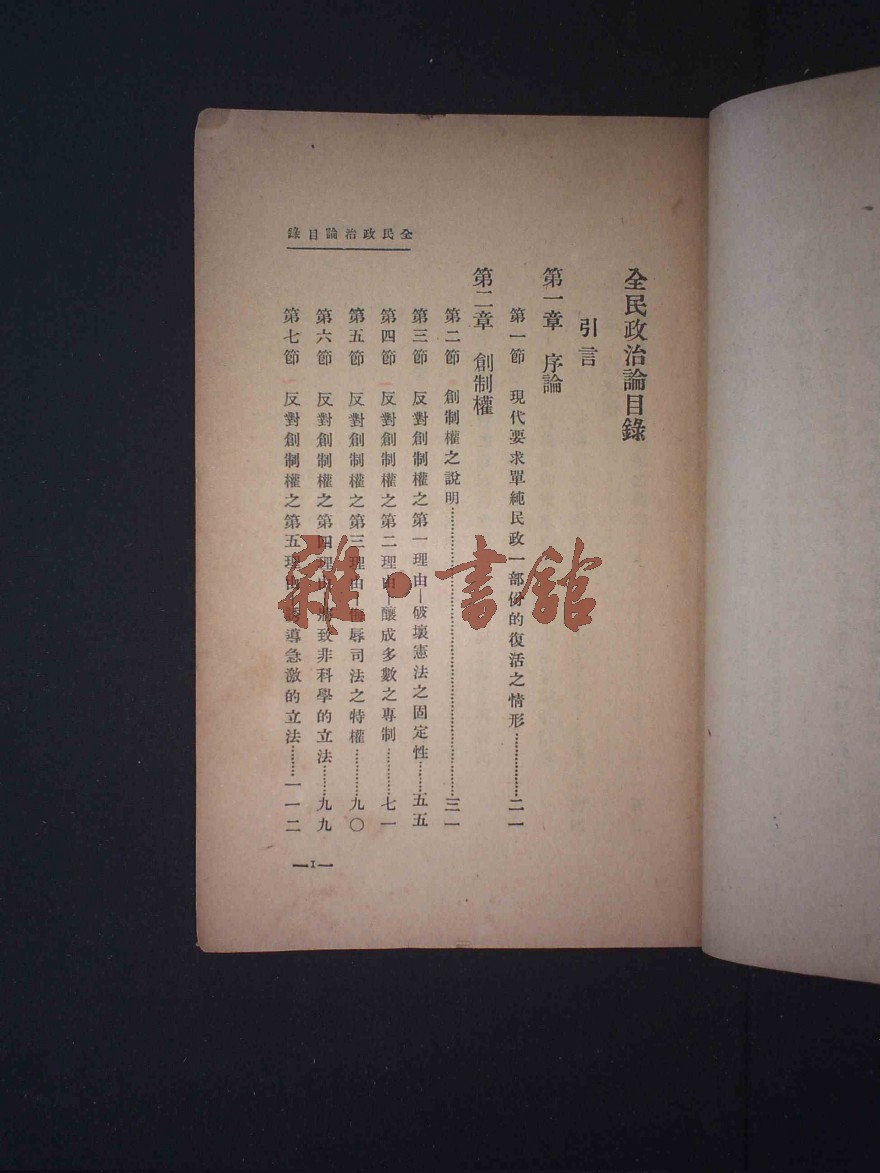 全民政治論目錄
全民政治論目錄
引言
第一章 序論
第一節 現代要求單純民政一部份的復活之情形…………二一
第二章 創制權
第二節 創制權之說明…………三一
第三節 反對創制權之第一理由—破壞憲法之固定性……五五
第四節 反對創制權之第二理由—釀成多數之專制………七一
第五節 反對創制權之第三理由—侮辱司法之特權………九〇
第六節 反對創制權之第四理由—將致非科學的立法……九九
第七節 反對創制權之第五理由—誘導急激的立法……一一二
—I—
雜·書館